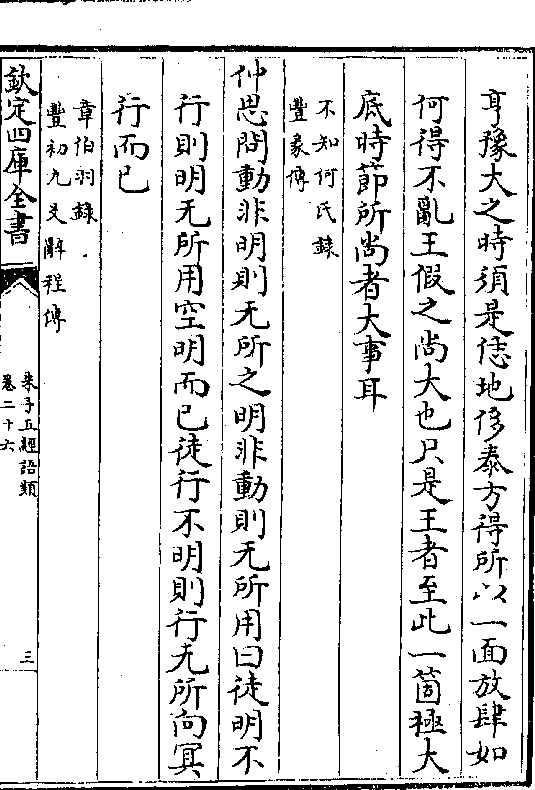 亨豫大之時須是恁地侈泰方得所以一面放肆如
何得不亂王假之尚大也只是王者至此一箇極大
底時節所尚者大事耳
不知何氏錄
豐彖傳
仲思問動非明則无所之明非動則无所用曰徒明不
行則明无所用空明而已徒行不明則行无所向冥
行而已
章伯羽錄
豐初九爻辭程傳
欽定四庫全書
朱子五經語類
卷二十六
三